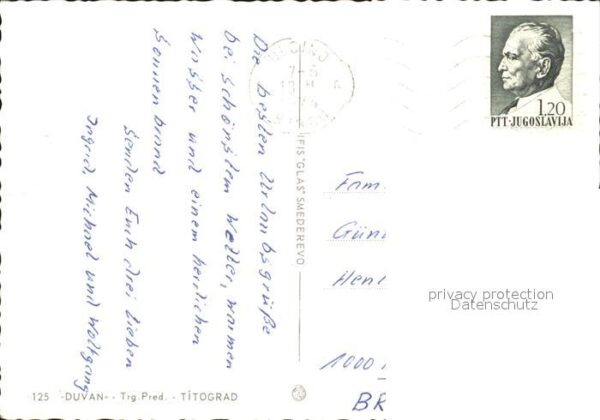 Die besten Urlaubsgrüße
bei schönstem Wetter, warmen
Wasser und einem herlichen
Sonnenbrand
Senden Euch drei Lieben
Ingrid, Michael und Wolfgang
1.20
PTT·JUGOSLAVIJA
IFIS "GLAS" SMEDEREVO
Fam.
Gün
Hen
1000
BR
privacy protection
Datenschutz
125 ·DUVAN· - Trg. Pred. - TITOGRAD